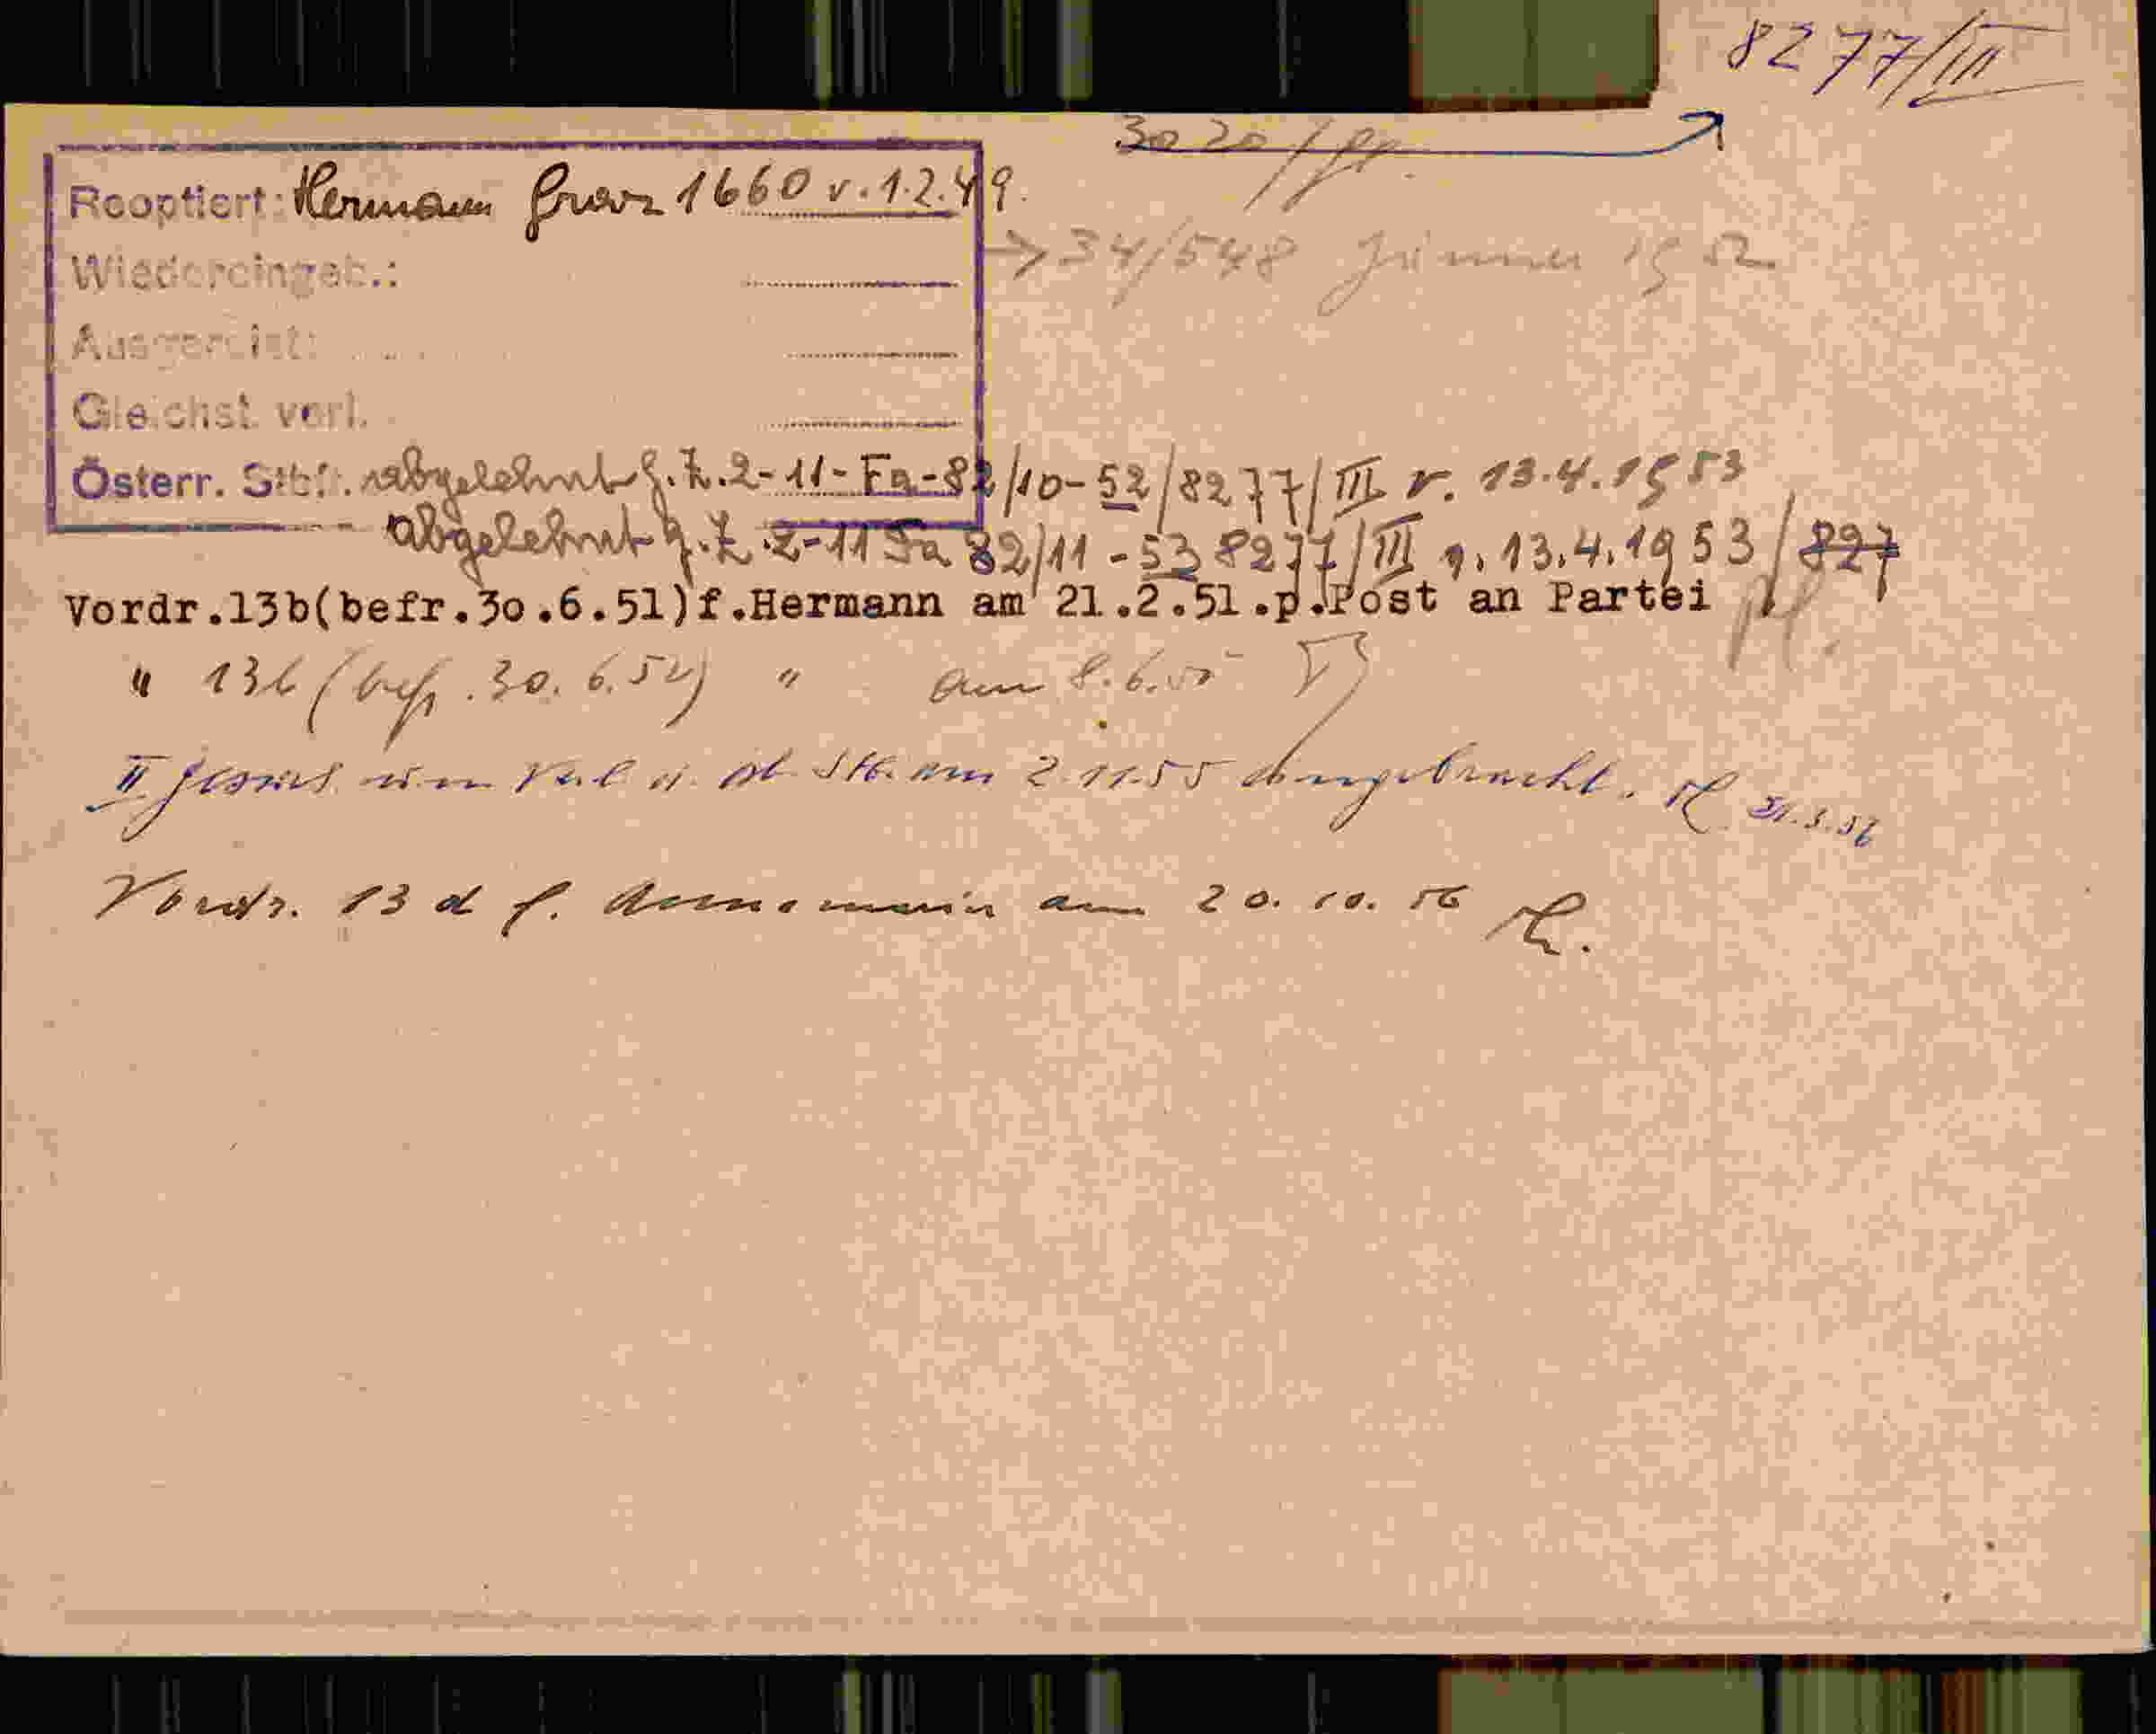 8277/III
3020/pr.
Reoptiert: Hermann 1660 v. 1.2.49.
→ 34/548 Jänner 1952
Wiedereingeb.:
Ausgereist:
Gleichst. verl.
Österr. Stbsch. abgelehnt g. Z. 2-11-Fa-82/10-52/8277/III v. 13.4.1953
abgelehnt g. Z. 2-11 Fa 82/11-53 8277/III v. 13.4.1953/827
Vordr.13b(befr.30.6.51)f.Hermann am 21.2.51.p.Post an Partei
" 13b (befr. 30.6.52) " am 8.6.
II um Verl. d. öst. Stb. am 2.11.55 eingebracht.
Vordr. 13 d f. Annemarie am 20.10.56